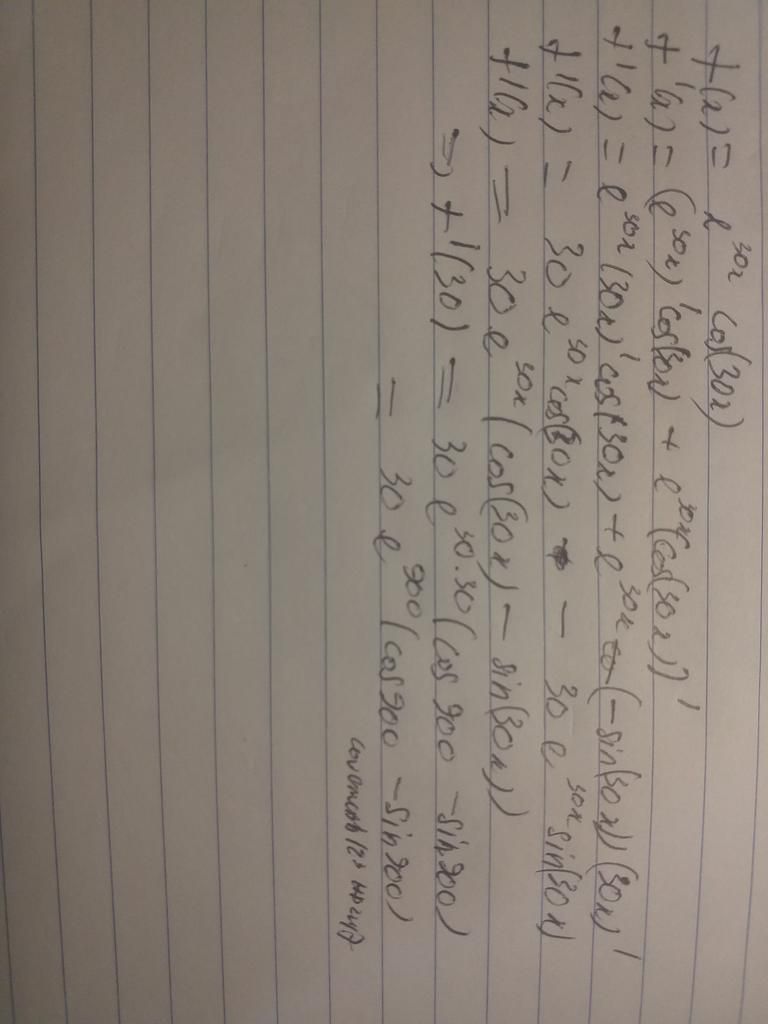 f(x) = e^30x cos(30x)
f'(x) = (e^30x)' cos(30x) + e^30x (cos(30x))'
f'(x) = e^30x (30x)' cos(30x) + e^30x (-sin(30x)) (30x)'
f'(x) = 30 e^30x cos(30x) - 30 e^30x sin(30x)
f'(x) = 30 e^30x (cos(30x) - sin(30x))
=> f'(30) = 30 e^30.30 (cos 900 - sin 900)
= 30 e^900 (cos 900 - sin 900)